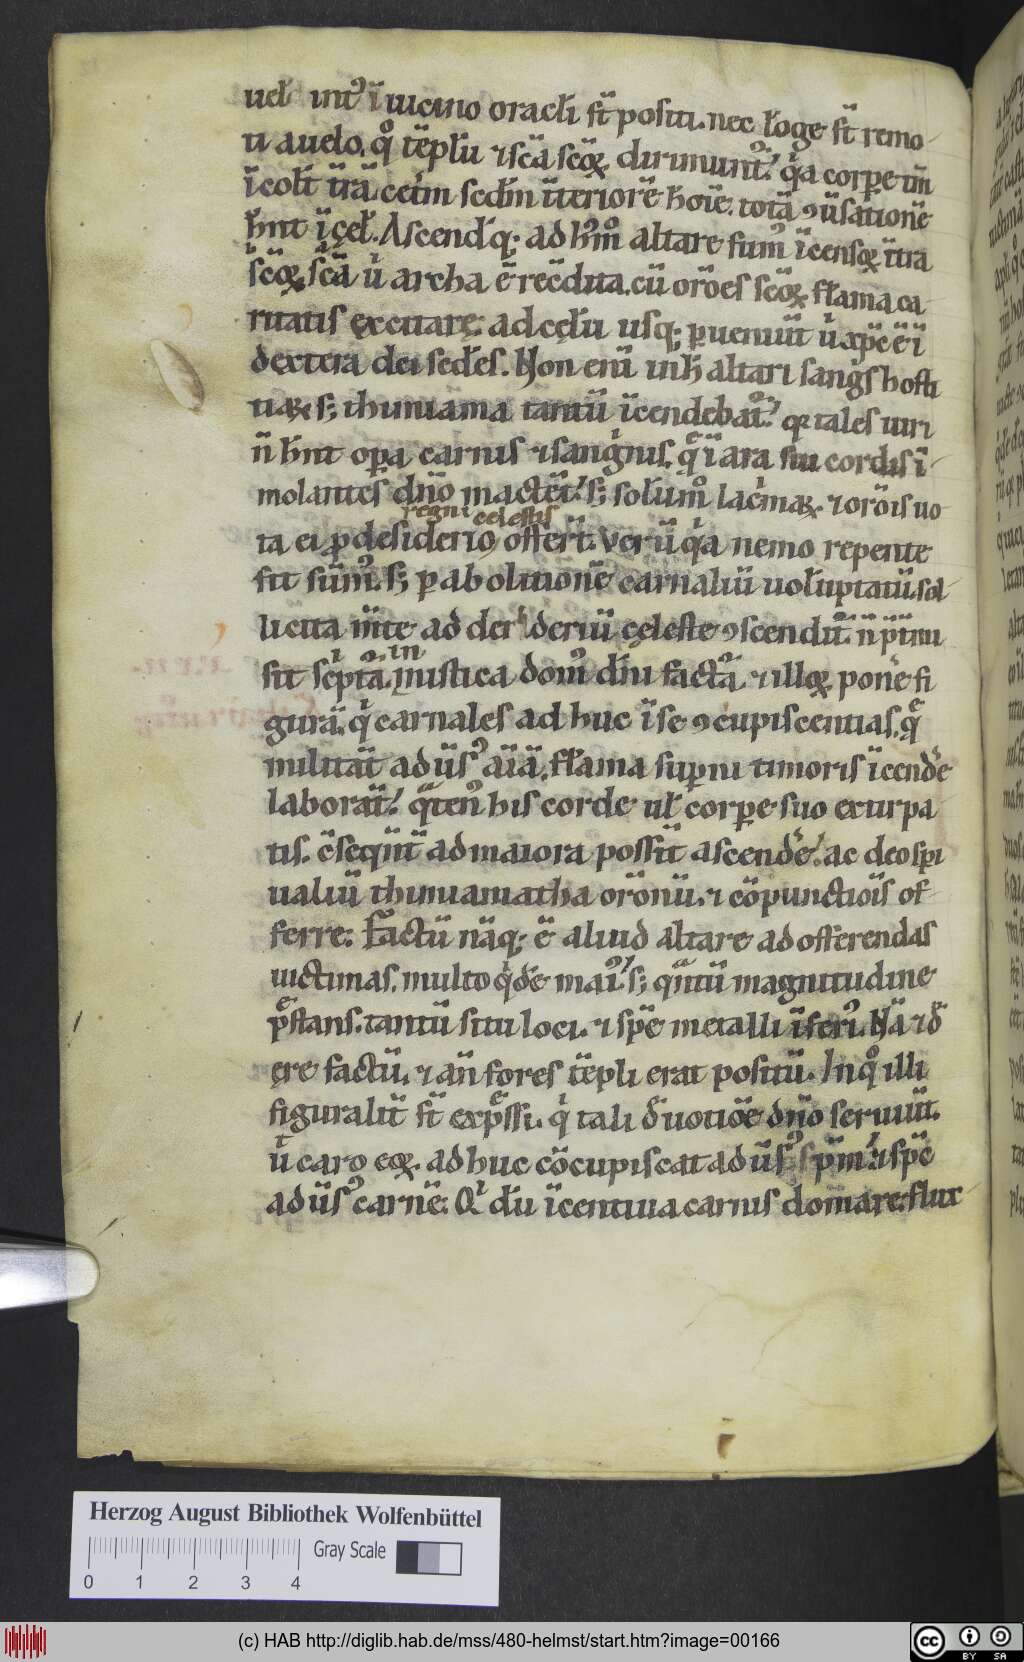 uel int᷒ ī iuicino oracłi st̄ positi. nec łoge st̄ remo
ti a uelo. q̊ tēpłū ⁊ scā scōꝝ dirimunt᷒. q̇a corꝑe tm̄
īcolt̄ t̄rā. cet̄m scdm̄ īteriorē hoīe. totā ꝯūsationē
hn̄t ī cęł. Ascendt̄ q; ad h᷒m̊ altare fum᷒ īcensoꝝ īt̄ra
scōꝝ scā u̇ archa ē recōdita. cū orōes scōꝝ fłama ca
ritatis excitatę; ad cęłū usq; ꝑueniūt u̇ xp̄c ē ī
dextera dei sedēs. Non eni ī inh̄ altari sangs hosti
tiaꝝ s; thimiama tantū īcendebat᷒. qꝛ tales uiri
n̄ hn̄t oꝑa carnis ⁊ sang̍nis. q̄ ī ara sui cordis ī
molantes dn̄o mactēt. s; solum̊ lac̍maꝝ. ⁊ orōis uo
regni celestis
ta ei ꝓ desiderio offert̄. Verū q̇a nemo repente
fit sūm᷒. s; ꝑ abolitionē carnaliū uołuptatū. sol
licita m̄te ad desi̍deriū cęleste ꝯscendit᷒. n̄ p̄t̄mi
in
sit sc̍ptā. mistica dom᷒ dn̄i factā. ⁊ illoꝝ pone fi
gurā. q̇ carnales ad huc ī se ꝯcupiscentias. q̄
militāt adūs᷒ aīā. fłama suꝑni timoris īcende
laborāt. q̄ten᷒ his corde uł corꝑe suo extirpa
tis. ꝯseq̄nt̄ ad maiora possīt ascendē. ac deo spi
ualiū thimiamatha orōnū. ⁊ cōpunctiōīs of
ferre. Factū nāq; ē aliud altare ad offerendas
uictimas. multo q̇dē mai᷒. s; qn̄tū magnitudine
p̄stans. tantū situ loci. ⁊ spē metalli īferi᷒. Nā ⁊ d̄
ęre factū. ⁊ an̄ fores tēpli erat positū. In q̊ illi
figuralit̄ st̄ exp̄ssi. q̇ tali d̄uotiōe dn̄o seruiūt.
ut̄ caro eoꝝ. ad huc cōcupiscat adūs᷒ spm̄. ⁊ spē
adūs᷒ carnē. Q̇ dū īcentiua carnis domare. flux
Herzog August Bibliothek Wolfenbüttel
Gray Scale
0 1 2 3 4
(c) HAB http://diglib.hab.de/mss/480-helmst/start.htm?image=00166
cc BY SA